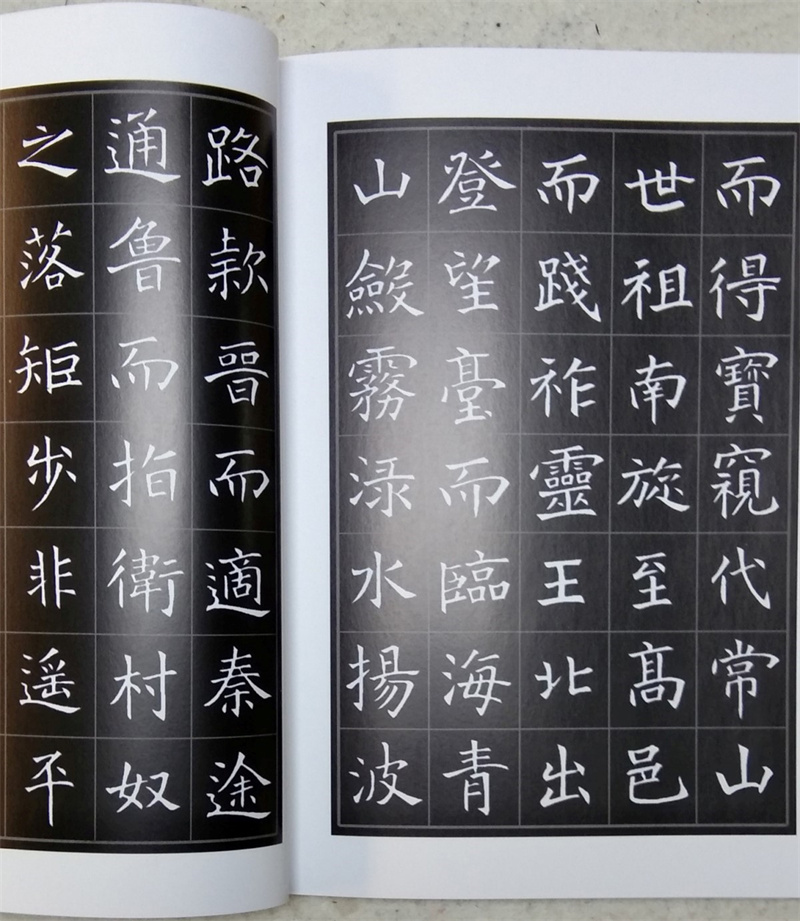 而得寶窺代常山
世祖南旋至髙邑
而踐祚靈王北出
登望臺而臨海青
山斂霧渌水揚波
路款晉而適秦途
通魯而指衛村奴
之落矩步非遥平